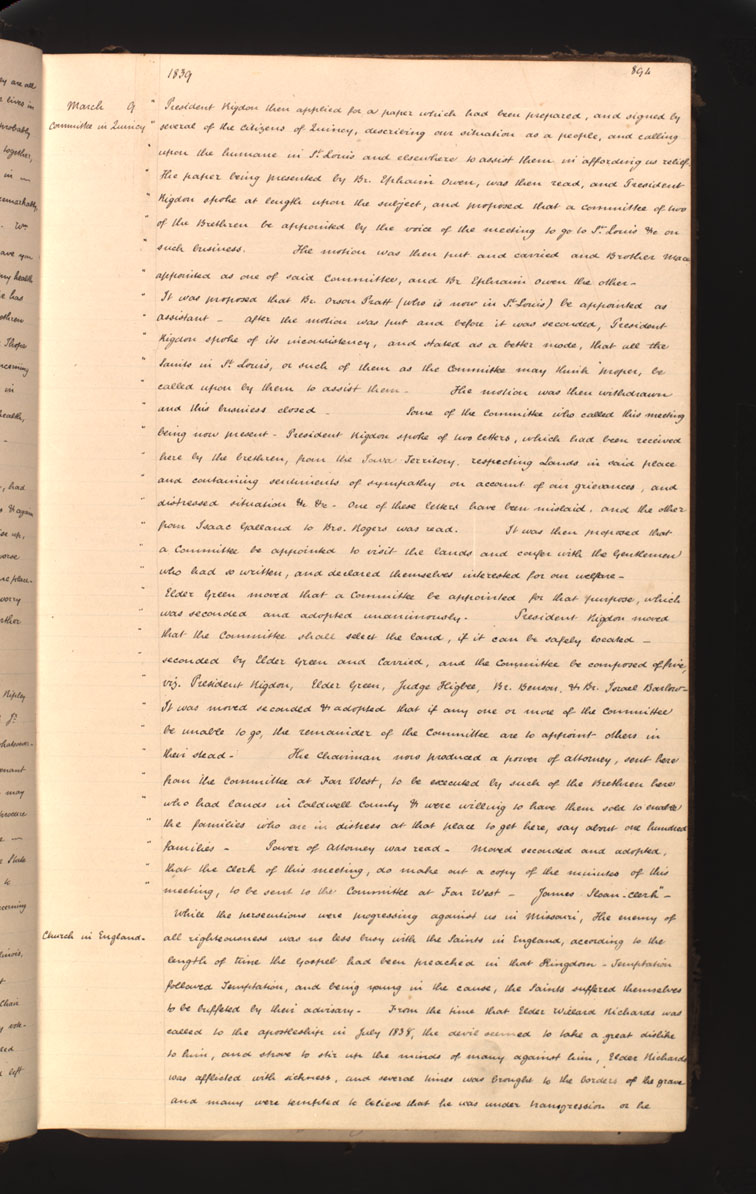 1839
894
March 9 " President Rigdon then applied for a paper which had been prepared, and signed by
Committee in Quincy " several of the Citizens of Quincy, describing our situation as a people, and calling
" upon the humane in St Louis and elsewhere to assist them in affording us relief.
" The paper being presented by Br. Ephraim Owen, was then read, and President
" Rigdon spoke at length upon the subject, and proposed that a committee of two
" of the Brethren be appointed by the voice of the meeting to go to St Louis &c on
" such business. The motion was then put and carried and Brother Mace
" appointed as one of said Committee, and Br Ephraim Owen the other-
" It was proposed that Br. Orson Pratt (who is now in St Louis) be appointed as
" assistant - after the motion was put and before it was seconded, President
" Rigdon spoke of its inconsistency, and stated as a better mode, that all the
" Saints in St Louis, or such of them as the Committee may think proper, be
" called upon by them to assist them - The motion was then withdrawn
" and this business closed - Some of the Committee who called this meeting
" being now present - President Rigdon spoke of two letters, which had been received
" here by the brethren, from the Iowa Territory. respecting Lands in said place
" and containing sentiments of sympathy on account of our grievances, and
" distressed situation &c &c - One of these letters have been mislaid, and the other
" from Isaac Galland to Bro. Rogers was read. It was then proposed that
" a Committee be appointed to visit the lands and confer with the Gentlemen
" who had so written, and declared themselves interested for our welfare -
" Elder Green moved that a Committee be appointed for that purpose, which
" was seconded and adopted unanimously. President Rigdon moved
" that the Committee shall select the land, if it can be safely located -
" seconded by Elder Green and Carried, and the Committee be composed of five,
" viz. President Rigdon, Elder Green, Judge Higbee, Br. Benson, & Br. Israel Barlow-
" It was moved seconded & adopted that if any one or more of the Committee
" be unable to go, the remainder of the Committee are to appoint others in
" their stead - The Chairman now produced a power of attorney, sent here
" from the Committee at Far West, to be executed by such of the Brethren here
" who had lands in Caldwell County & were willing to have them sold to enable
" the families who are in distress at that place to get here, say about one hundred
" families - Power of Attorney was read - Moved seconded and adopted,
" that the Clerk of this meeting, do make out a copy of the minutes of this
" meeting, to be sent to the Committee at Far West - James Sloan - Clerk" -
While the persecutions were progressing against us in Missouri, the enemy of
Church in England - all righteousness was no less busy with the Saints in England, acording to the
length of time the Gospel had been preached in that Kingdom - Temptation
followed Temptation, and being young in the cause, the Saints suffered themselves
to be buffeted by their advisary - From the time that Elder Willard Richards was
called to the apostleship in July 1838, the devil seemed to take a great dislike
to him, and strove to stir up the minds of many against him, Elder Richards
was afflicted with sickness, and several times was brought to the borders of the grave
and many were tempted to believe that he was under transgression or he